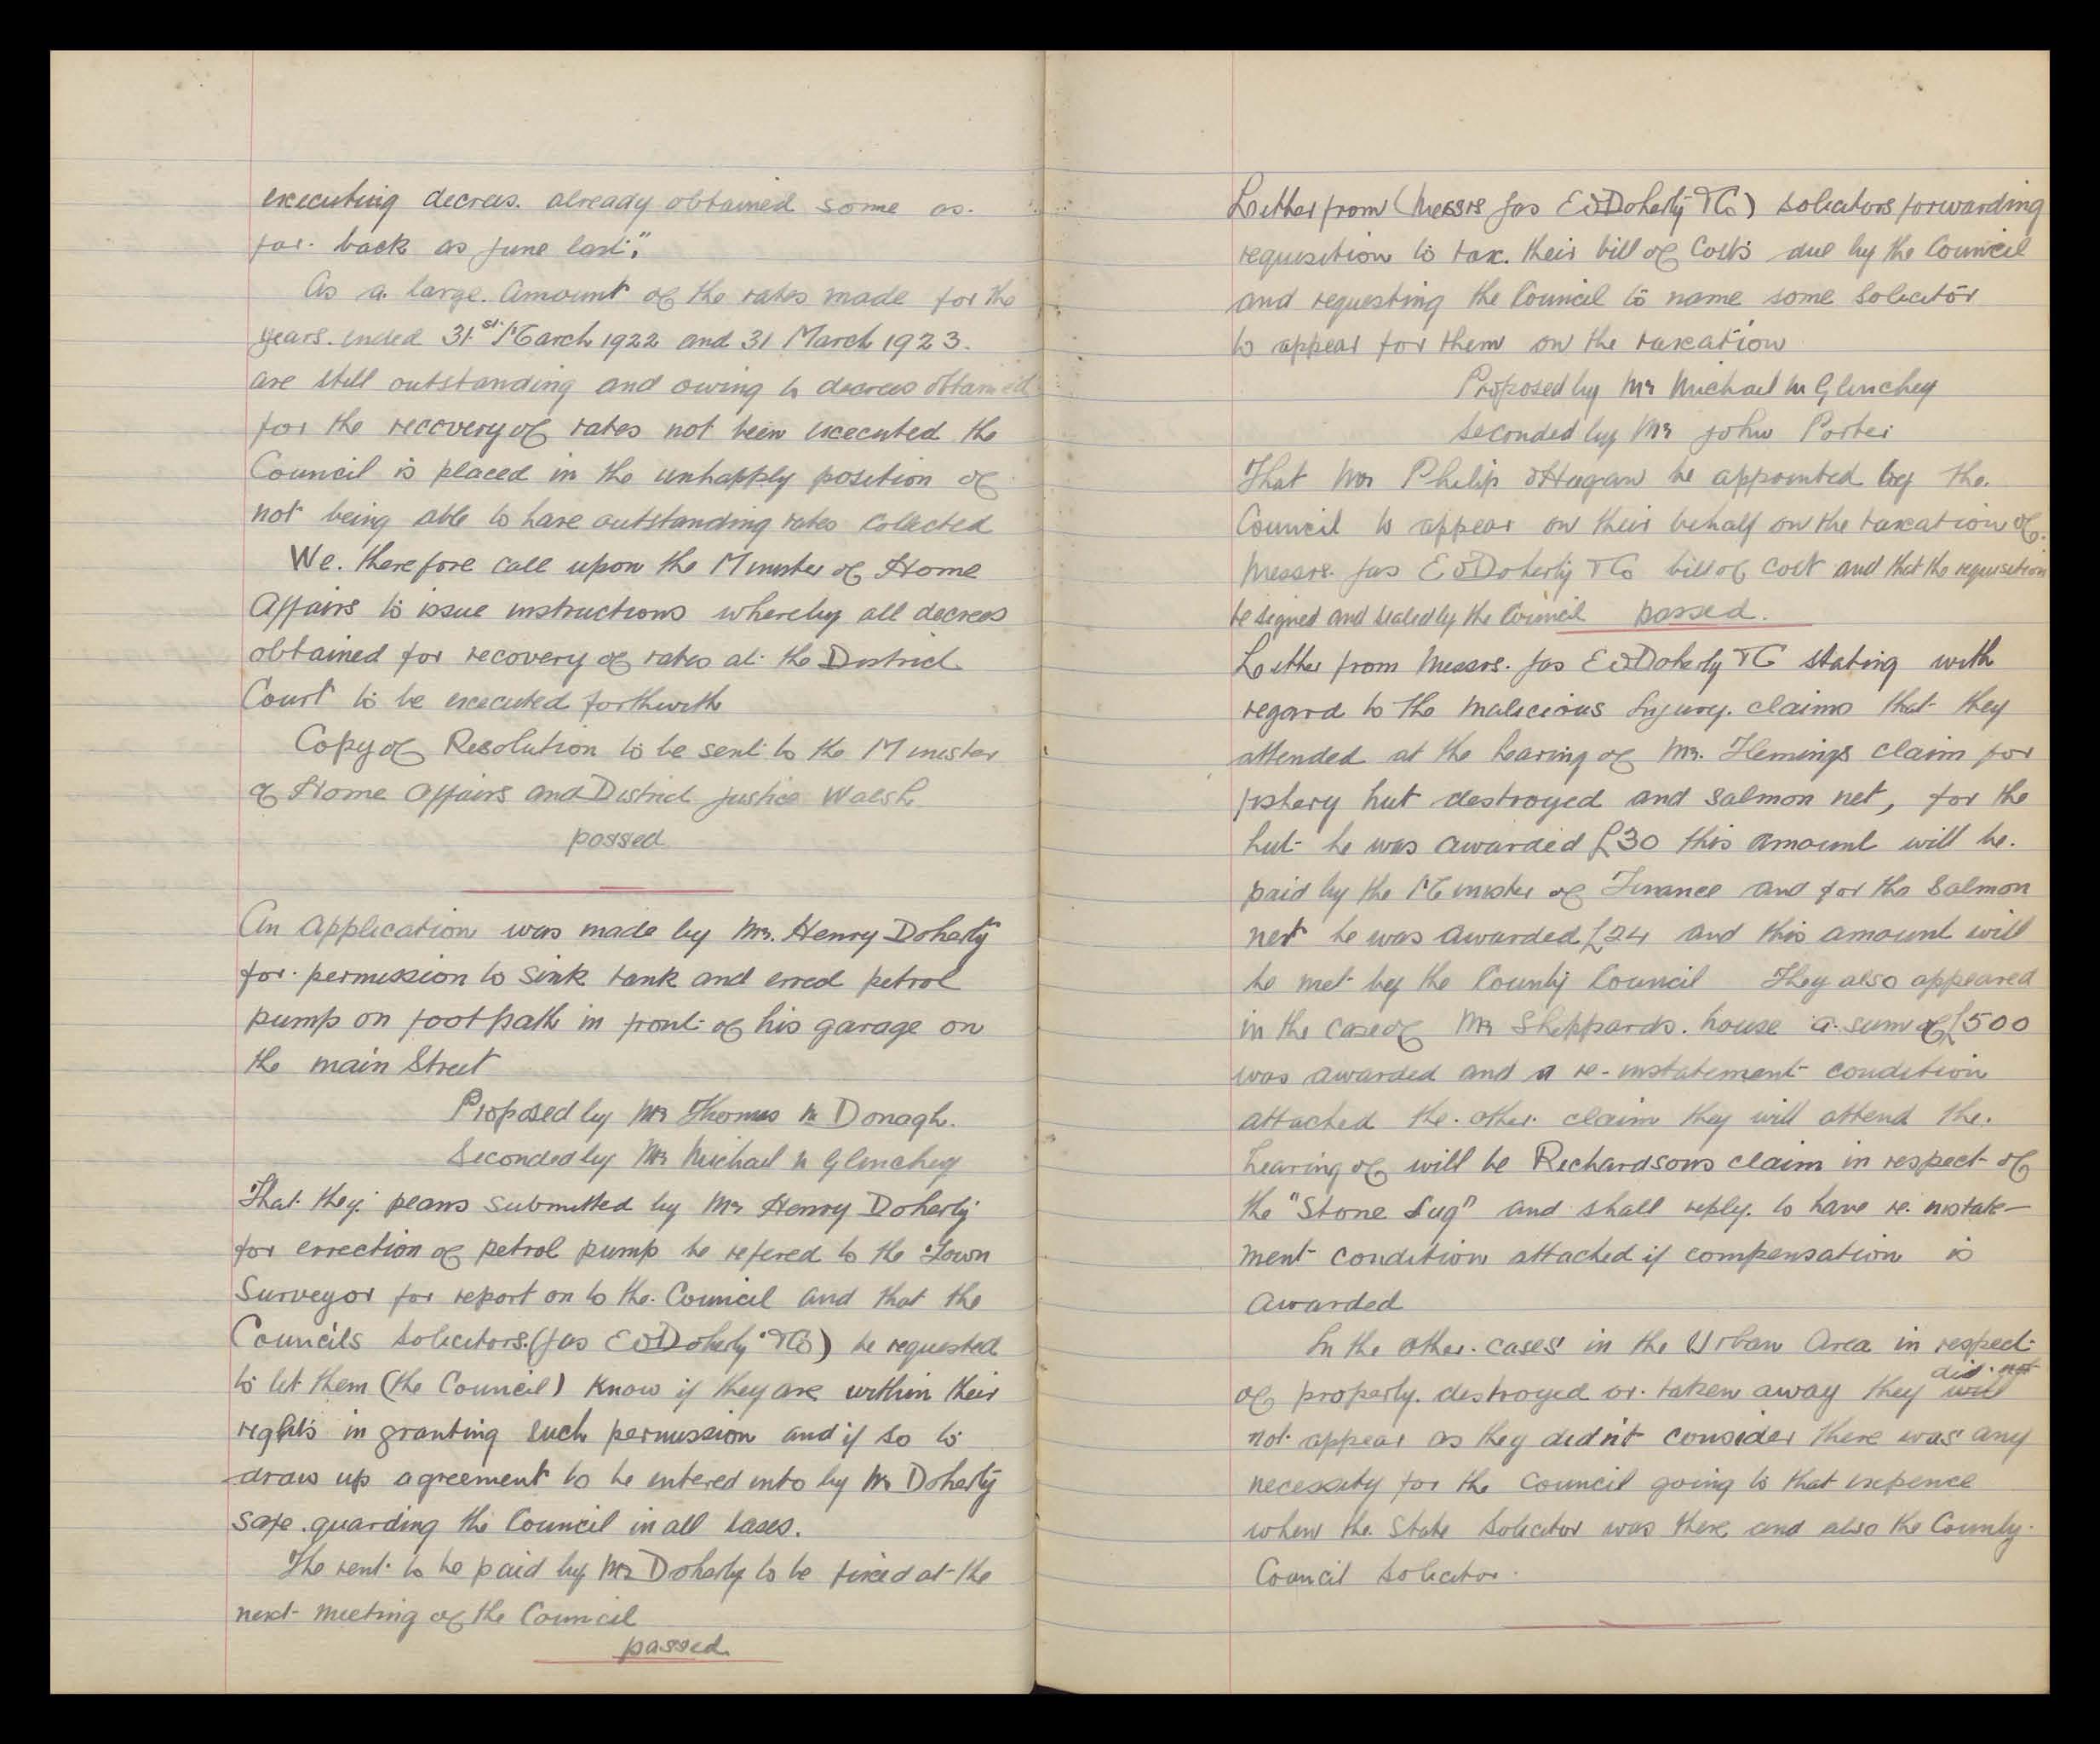 executing decrees. already obtained some as.
far. back as June last."
As a large. amount of the rates made for the
years. ended 31st March 1922 and 31 March 1923.
are still outstanding and owing to decrees obtained
for the recovery of rates not been executed the
Council is placed in the unhapply position of
not being able to have outstanding rates collected
We. therefore call upon the Minister of Home
Affairs to issue instructions whereby all decrees
obtained for recovery of rates at the District
Court to be executed forthwith
Copy of Resolution to be sent to the Minister
of Home Affairs and District Justice Walsh
passed
An application was made by Mr. Henry Doherty
for permission to sink tank and erred petrol
pump on footpath in front of his garage on
the main Street
Proposed by Mr Thomas Mc Donagh.
Seconded by Mr Michael Mc Glinchey
That they plans submitted by Mr Henry Doherty
for errection of petrol pump be refered to the Town
Surveyor for report on to the Council and that the
Councils Solicitors. (Jas E O'Doherty & Co) be requested
to let them (the Council) know if they are within their
reghts in granting such permission and if so to
draw up agreement to be entered into by Mr Doherty
safe.guarding the Council in all cases.
The rent to be paid by Mr Doherty to be fixed at the
next meeting of the Council
passed
Letter from (Messrs Jas E O'Doherty & Co) solicitors forwarding
requisition to tax. their bill of Costs due by the Council
and requesting the Council to name some Solicitor
to appear for them on the taxation
Proposed by Mr Michael Mc Glinchey
Seconded by Mr John Porter
That Mr Philip O'Hagan be appointed by the.
Council to appear on their behalf on the taxation of.
Messrs. Jas E O'Doherty & Co bill of cost and that the requisition
be signed and sealed by the Council passed.
Letter from Messrs. Jas E O'Doherty & C stating with
regard to the Malicious Injury. claims that they
attended at the hearing of Mr. Flemings claim for
fishery hut destroyed and salmon net, for the
hut he was awarded £30 this amount will be.
paid by the Minister of Finance and for the Salmon
net he was awarded £24 and this amount will
be met by the County Council They also appeared
in the case of Mr Sheppards. house a sum of £500
was awarded and a re-instatement condition
attached the. other. claim they will attend the.
hearing of will be Richardsons claim in respect of
the "Stone Jug" and shall reply. to have re. instate-
ment condition attached if compensation is
awarded
In the other. cases in the Urban Area in respect
did not
of property. destroyed or. taken away they will
not appear as they didn't consider there was any
necessity for the Council going to that expence
when the State Solicitor was there and also the County.
Council Solicitor.